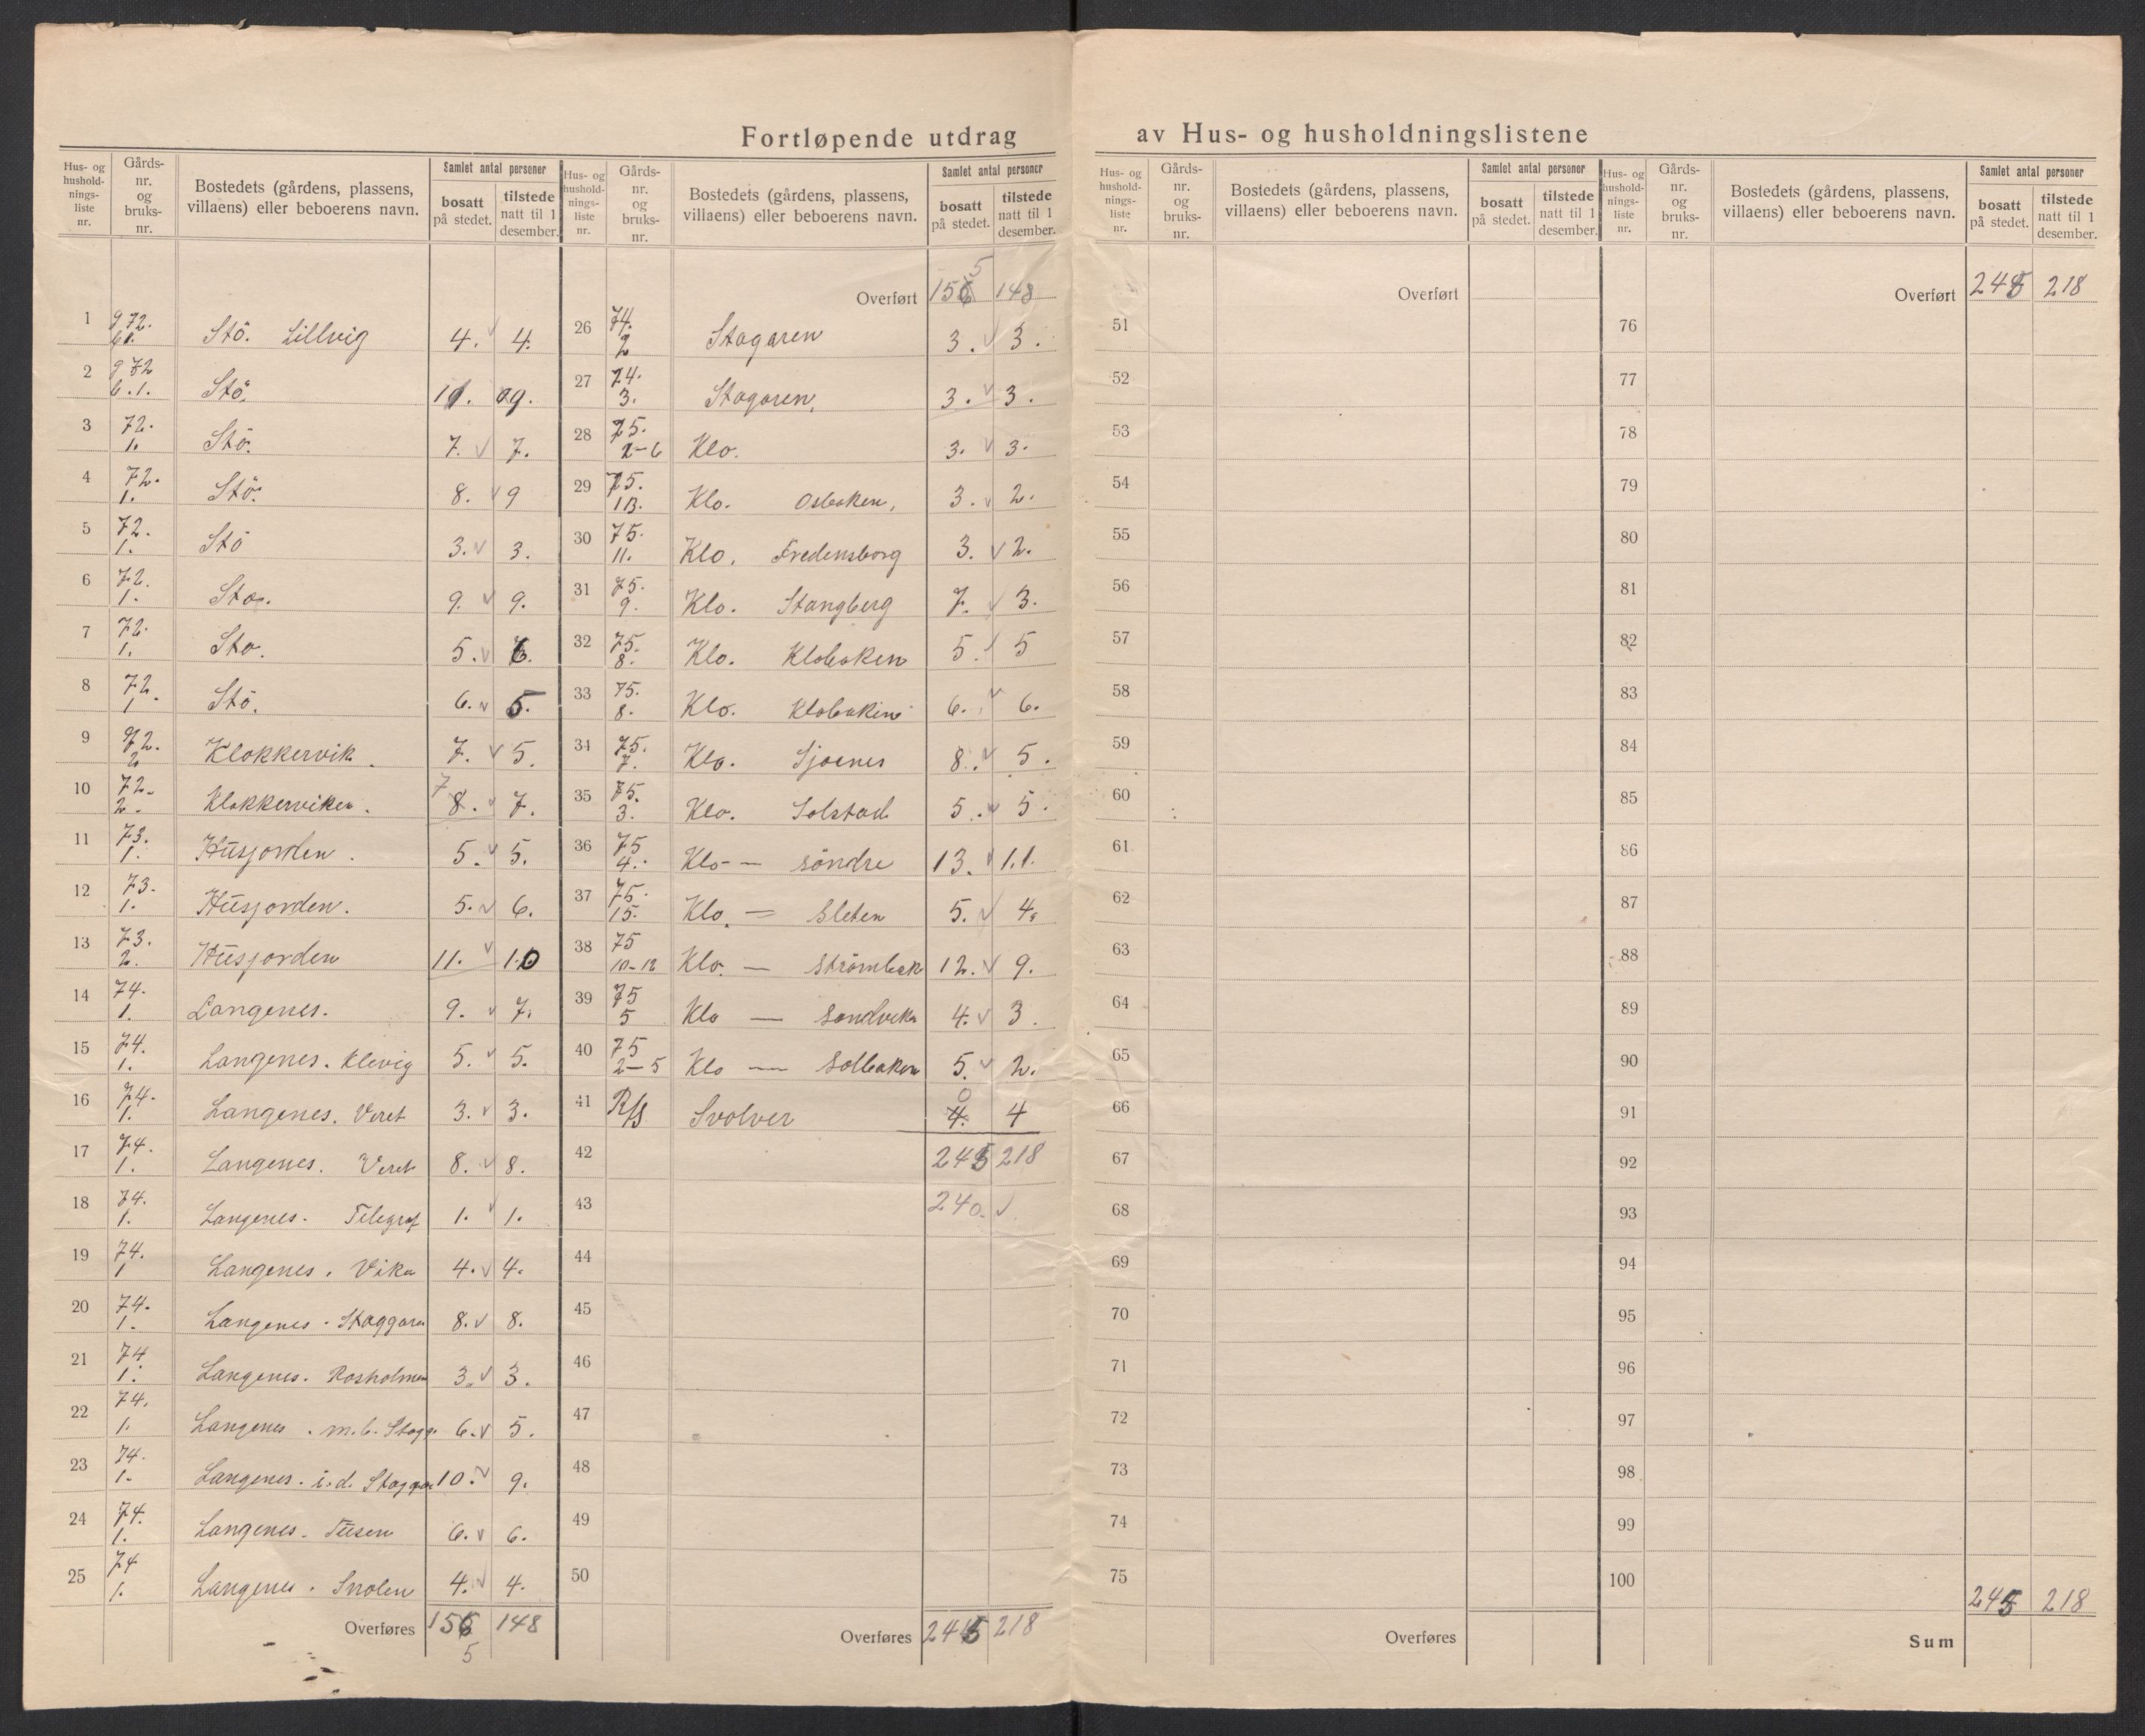 Fortløpende utdrag av Hus- og husholdningslistene
Hus- og hushold-nings-liste nr. | Gårds-nr. og bruks-nr. | Bostedets (gårdens, plassens, villaens) eller beboerens navn. | Samlet antal personer | bosatt på stedet. | tilstede natt til 1 desember.
1 | g 72. b 1. | Stö. Lillvig | 4. | 4.
2 | g 72 b. 1. | Stö. | 11. | 9.
3 | 72. 1. | Stö. | 7. | 7.
4 | 72. 1. | Stö. | 8. | 9
5 | 72. 1. | Stö | 3. | 3.
6 | 72. 1. | Stø. | 9. | 9.
7 | 72. 1. | Sto. | 5. | 6.
8 | 72. 1 | Stö. | 6. | 5.
9 | 72. 2 | Klokkervik. | 7. | 5.
10 | 72. 2. | Klokkerviken. | 7 8. | 7.
11 | 73. 1. | Hüsjorden. | 5. | 5.
12 | 73. 1. | Hüsjorden. | 5. | 6.
13 | 73. 2. | Hüsjorden | 11. | 10
14 | 74. 1. | Langenes. | 9. | 7.
15 | 74. 1. | Langenes. Klevig | 5. | 5.
16 | 74. 1. | Langenes. Veret | 3. | 3.
17 | 74. 1. | Langenes. Veret | 8. | 8.
18 | 74. 1. | Langenes. Telegraf | 1. | 1.
19 | 74. 1 | Langenes. Vika | 4. | 4.
20 | 74. 1. | Langenes. Staggare | 8. | 8.
21 | 74. 1. | Langenes. Rosholmen | 3. | 3.
22 | 74. 1. | Langenes. m.b. Stagg. | 6. | 5.
23 | 74. 1. | Langenes. i.d. | 10. | 9.
24 | 74. 1. | Langenes. | 6. | 6.
25 | 74 1. | Langenes. | 4. | 4.
Overføres | 156 | 148
5
Hus- og hushold-nings-liste nr. | Gårds-nr. og bruks-nr. | Bostedets (gårdens, plassens, villaens) eller beboerens navn. | Samlet antal personer | bosatt på stedet. | tilstede natt til 1 desember.
5
Overført | 156 | 148
26 | 74. 2 | Stagaren | 3. | 3.
27 | 74. 3. | Stagaren, | 3. | 3.
28 | 75. 2-6 | Klo. | 3. | 3.
29 | 75. 13. | Klo. Osbaken, | 3. | 2.
30 | 75. 11. | Klo. Fredensborg | 3. | 2.
31 | 75. 9. | Klo. Stangberg | 7. | 3.
32 | 75. 8. | Klo. Klobaken | 5. | 5
33 | 75. 8. | Klo. Klobakin | 6. | 6.
34 | 75. 7. | Klo. Sjoenes | 8. | 5.
35 | 75. 3. | Klo. Solstad | 5. | 5.
36 | 75 4. | Klo - söndre | 13. | 11.
37 | 75. 15. | Klo. - Sleten | 5. | 4.
38 | 75 10-12 | Klo. - Strömbak | 12. | 9.
39 | 75 5 | Klo - Sandvika | 4. | 3.
40 | 75 2-5 | Klo - Solbaken | 5. | 2.
0
41 | R/S | Svolver | 4. | 4
42 | 245 | 218
43 | 240.
44
45
46
47
48
49
50
Overføres | 245 | 218
Hus- og hushold-nings-liste nr. | Gårds-nr. og bruks-nr. | Bostedets (gårdens, plassens, villaens) eller beboerens navn. | Samlet antal personer | bosatt på stedet. | tilstede natt til 1 desember.
Overført
51
52
53
54
55
56
57
58
59
60
61
62
63
64
65
66
67
68
69
70
71
72
73
74
75
Overføres
Hus- og hushold-nings-liste nr. | Gårds-nr. og bruks-nr. | Bostedets (gårdens, plassens, villaens) eller beboerens navn. | Samlet antal personer | bosatt på stedet. | tilstede natt til 1 desember.
Overført | 245 | 218
76
77
78
79
80
81
82
83
84
85
86
87
88
89
90
91
92
93
94
95
96
97
98
99
100
245 | 218
Sum